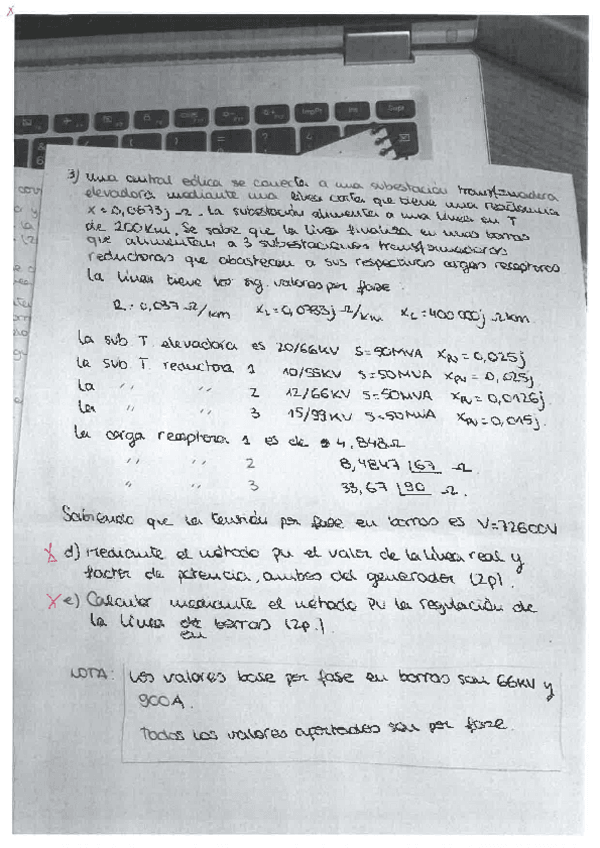 3) Una central eólica se conecta a una subestación transformadora
elevadora mediante una línea corta que tiene una reactancia
X = 0,0673j Ω. La subestación alimenta a una línea en T
de 200Km. Se sabe que la línea finaliza en unas barras
que alimentan a 3 subestaciones transformadoras
reductoras que abastecen a sus respectivas cargas receptoras
La línea tiene los sig. valores por fase:
R = 0,037 Ω/km XL = 0,0783j Ω/km Xc = 400 000j Ω km.
La sub T. elevadora es 20/66KV S=90MVA Xpu = 0,025j
La sub T. reductora 1 10/55KV S=50MVA Xpu = 0,025j
La '' '' 2 12/66KV S=50MVA Xpu = 0,0126j
La '' '' 3 15/99KV S=50MVA Xpu = 0,015j.
La carga receptora 1 es de 4,848Ω
'' '' 2 8,4847 |67 Ω.
'' '' 3 33,67 |90 Ω.
Sabiendo que la tensión por fase en barras es V=72600V
d) Mediante el método pu el valor de la línea real y
factor de potencia, ambos del generador (2p).
e) Calcular mediante el método PU la regulación de
la línea de barras (2p.)
en
NOTA: Los valores base por fase en barras son 66KV y
900A.
Todos los valores aportados son por fase.